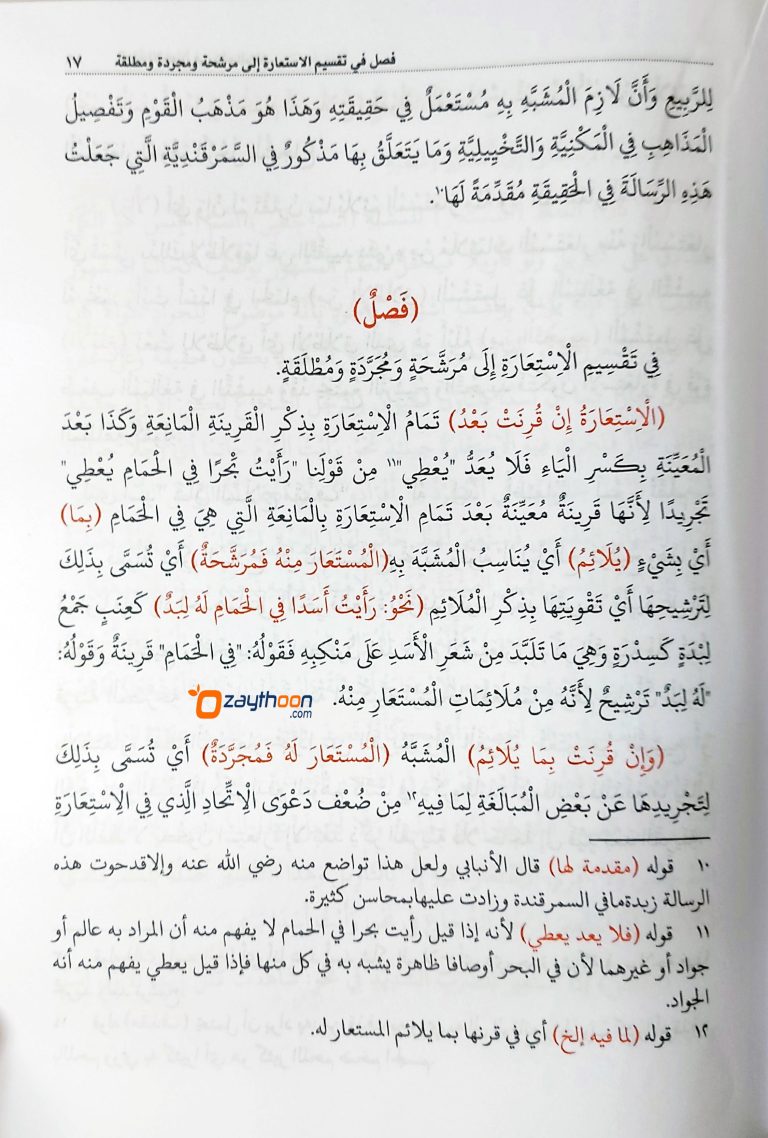 فصل في تقسيم الاستعارة إلى مرشحة ومجردة ومطلقة ١٧
لِلرَّبِيعِ وَأَنَّ لَازِمَ الْمُشَبَّهِ بِهِ مُسْتَعْمَلٌ فِي حَقِيقَتِهِ وَهَذَا هُوَ مَذْهَبُ الْقَوْمِ وَتَفْصِيلُ
الْمَذَاهِبِ فِي الْمَكْنِيَّةِ وَالتَّخْيِيلِيَّةِ وَمَا يَتَعَلَّقُ بِهَا مَذْكُورٌ فِي السَّمَرْقَنْدِيَّةِ الَّتِي جَعَلْتُ
هَذِهِ الرِّسَالَةَ فِي الْحَقِيقَةِ مُقَدِّمَةً لَهَا١٠.
(فَصْلٌ)
فِي تَقْسِيمِ الْاِسْتِعَارَةِ إِلَى مُرَشَّحَةٍ وَمُجَرَّدَةٍ وَمُطْلَقَةٍ.
(الْاِسْتِعَارَةُ إِنْ قُرِنَتْ بَعْدُ) تَمَامُ الْاِسْتِعَارَةِ بِذِكْرِ الْقَرِينَةِ الْمَانِعَةِ وَكَذَا بَعْدَ
الْمُعَيِّنَةِ بِكَسْرِ الْيَاءِ فَلَا يُعَدُّ "يُعْطِي"١١ مِنْ قَوْلِنَا "رَأَيْتُ بَحْرًا فِي الْحَمَامِ يُعْطِي"
تَجْرِيدًا لِأَنَّهَا قَرِينَةٌ مُعَيِّنَةٌ بَعْدَ تَمَامِ الْاِسْتِعَارَةِ بِالْمَانِعَةِ الَّتِي هِيَ فِي الْحَمَامِ (بِمَا)
أَيْ بِشَيْءٍ (يُلَائِمُ) أَيْ يُنَاسِبُ الْمُشَبَّهَ بِهِ(الْمُسْتَعَارَ مِنْهُ فَمُرَشَّحَةٌ) أَيْ تُسَمَّى بِذَلِكَ
لِتَرْشِيحِهَا أَيْ تَقْوِيَتِهَا بِذِكْرِ الْمُلَائِمِ (نَحْوُ: رَأَيْتُ أَسَدًا فِي الْحَمَامِ لَهُ لِبَدٌ) كَعِنَبٍ جَمْعُ
لِبْدَةٍ كَسِدْرَةٍ وَهِيَ مَا تَلَبَّدَ مِنْ شَعَرِ الْأَسَدِ عَلَى مَنْكِبِهِ فَقَوْلُهُ: "فِي الْحَمَامِ" قَرِينَةٌ وَقَوْلُهُ:
"لَهُ لِبَدٌ" تَرْشِيحٌ لِأَنَّهُ مِنْ مُلَائِمَاتِ الْمُسْتَعَارِ مِنْهُ.
Ozaythoon
.com
(وَإِنْ قُرِنَتْ بِمَا يُلَائِمُ) الْمُشَبَّهُ (الْمُسْتَعَارَ لَهُ فَمُجَرَّدَةٌ) أَيْ تُسَمَّى بِذَلِكَ
لِتَجْرِيدِهَا عَنْ بَعْضِ الْمُبَالَغَةِ لِمَا فِيهِ١٢ مِنْ ضُعْفِ دَعْوَى الْاِتِّحَادِ الَّذِي فِي الْاِسْتِعَارَةِ
١٠ قوله (مقدمة لها) قال الأنبابي ولعل هذا تواضع منه رضي الله عنه وإلاقدحوت هذه
الرسالة زبدةمافي السمرقندة وزادت عليهابمحاسن كثيرة.
١١ قوله (فلا يعد يعطي) لأنه إذا قيل رأيت بحرا في الحمام لا يفهم منه أن المراد به عالم أو
جواد أو غيرهما لأن في البحر أوصافا ظاهرة يشبه به في كل منها فإذا قيل يعطي يفهم منه أنه
الجواد.
١٢ قوله (لما فيه إلخ) أي في قرنها بما يلائم المستعار له.